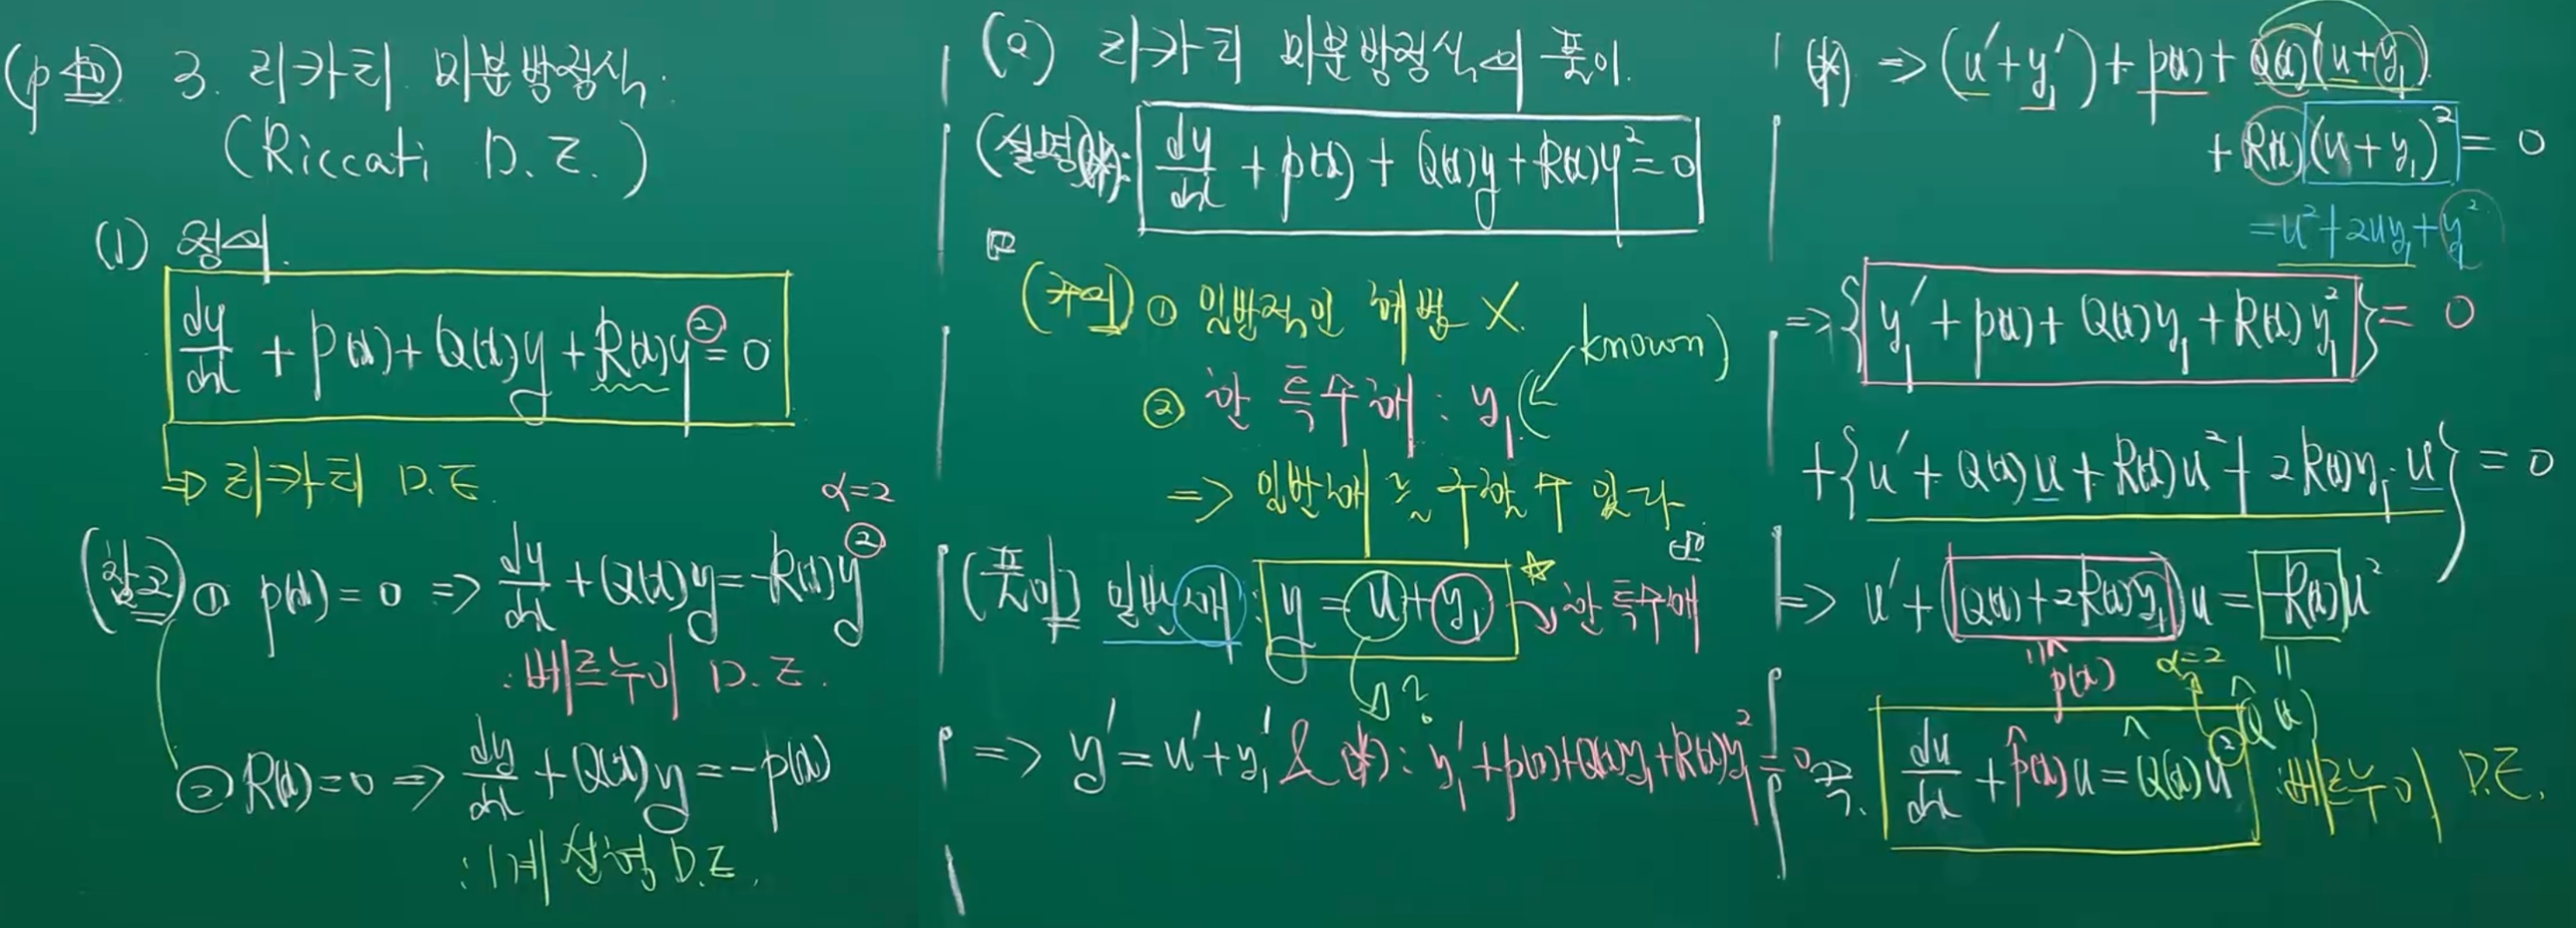 3. 리카티 미분방정식.
(Riccati D.E.)
(1) 정의.
dy/dx + p(x) + Q(x)y + R(x)y² = 0
→ 리카티 D.E.
(참고) ① p(x) = 0 ⇒ dy/dx + Q(x)y = -R(x)y²
α=2
: 베르누이 D.E.
② R(x) = 0 ⇒ dy/dx + Q(x)y = -p(x)
: 1계 선형 D.E.
(2) 리카티 미분방정식의 풀이.
(설명) (*): dy/dx + p(x) + Q(x)y + R(x)y² = 0
(주의) ① 일반적인 해법 X.
② 한 특수해 : y₁ (known)
⇒ 일반해를 구할 수 있다.
(풀이) 일반해 : y = u + y₁ ☆ → 한 특수해
?
⇒ y′ = u′ + y₁′ & (*): y₁′ + p(x) + Q(x)y₁ + R(x)y₁² = 0
(*) ⇒ (u′ + y₁′) + p(x) + Q(x)(u + y₁)
+ R(x)(u + y₁)² = 0
= u² + 2uy₁ + y₁²
⇒ {y₁′ + p(x) + Q(x)y₁ + R(x)y₁²} = 0
+ {u′ + Q(x)u + R(x)u² + 2R(x)y₁·u} = 0
⇒ u′ + (Q(x) + 2R(x)y₁)u = -R(x)u²
|| p̂(x) α=2 || Q̂(x)
즉, du/dx + p̂(x)u = Q̂(x)u² : 베르누이 D.E.